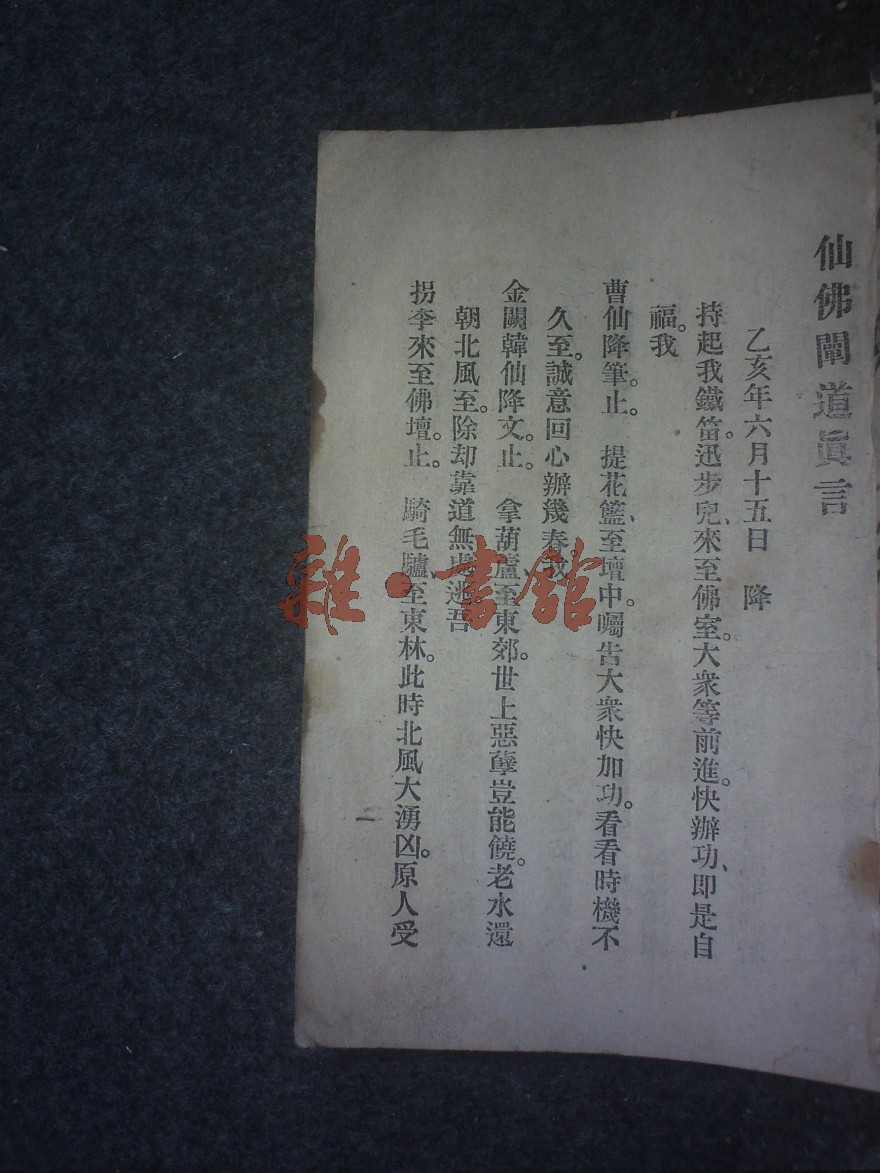 仙佛闡道眞言
乙亥年六月十五日　降
持起我鐵笛。迅步兒、來至佛室。大衆等前進。快辦功、即是自
福。我
曹仙降筆。止。　提花籃、至壇中。囑告大衆快加功。看看時機不
久至。誠意回心辦幾春。我
金闕韓仙降文。止。　拿葫蘆、至東郊。世上惡孽豈能饒。老水還
朝北風至。除却靠道無 逃。吾
拐李來至佛壇。止。　騎毛驢、至東林。此時北風大湧凶。原人受
一
雜·書館